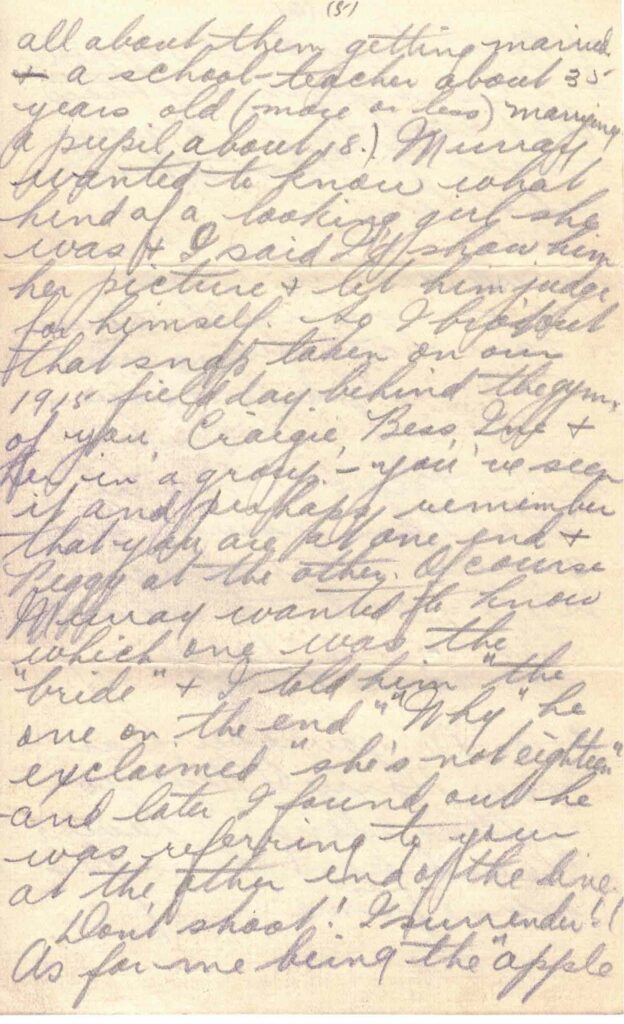 (5)
all about them getting married
& a school-teacher about 35
years old (more or less) marrying
a pupil about 18.) Murray
wanted to know what
kind of a looking girl she
was & I said I'd show him
her picture & let him judge
for himself. So I bro't out
that snap taken on our
1915 field day behind the gym,
of you, Craigie, Bess, Ine &
her in a group. – you've seen
it and perhaps remember
that you are at one end &
Peggy at the other. Of course
Murray wanted to know
which one was the
"bride" & I told him "the
one on the end" "Why" he
exclaimed "she's not eighteen"
and later I found out he
was referring to your
at the other end of the line.
Don't shoot! I surrender!!
As for me being the "apple